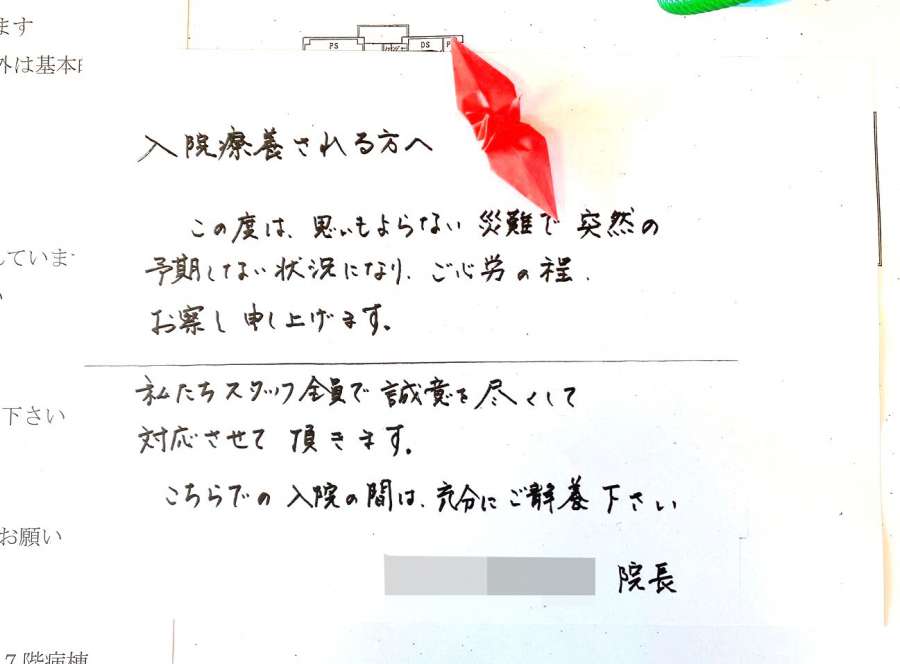 ます
外は基本
PS
DS
入院療養される方へ
この度は、思いもよらない災難で突然の
予期しない状況になり、ご心労の程、
お察し申し上げます。
れていませ
私たちスタッフ全員で誠意を尽くして
対応させて頂きます。
下さい
こちらでの入院の間は、充分にご静養下さい
お願い
院長
7階病棟